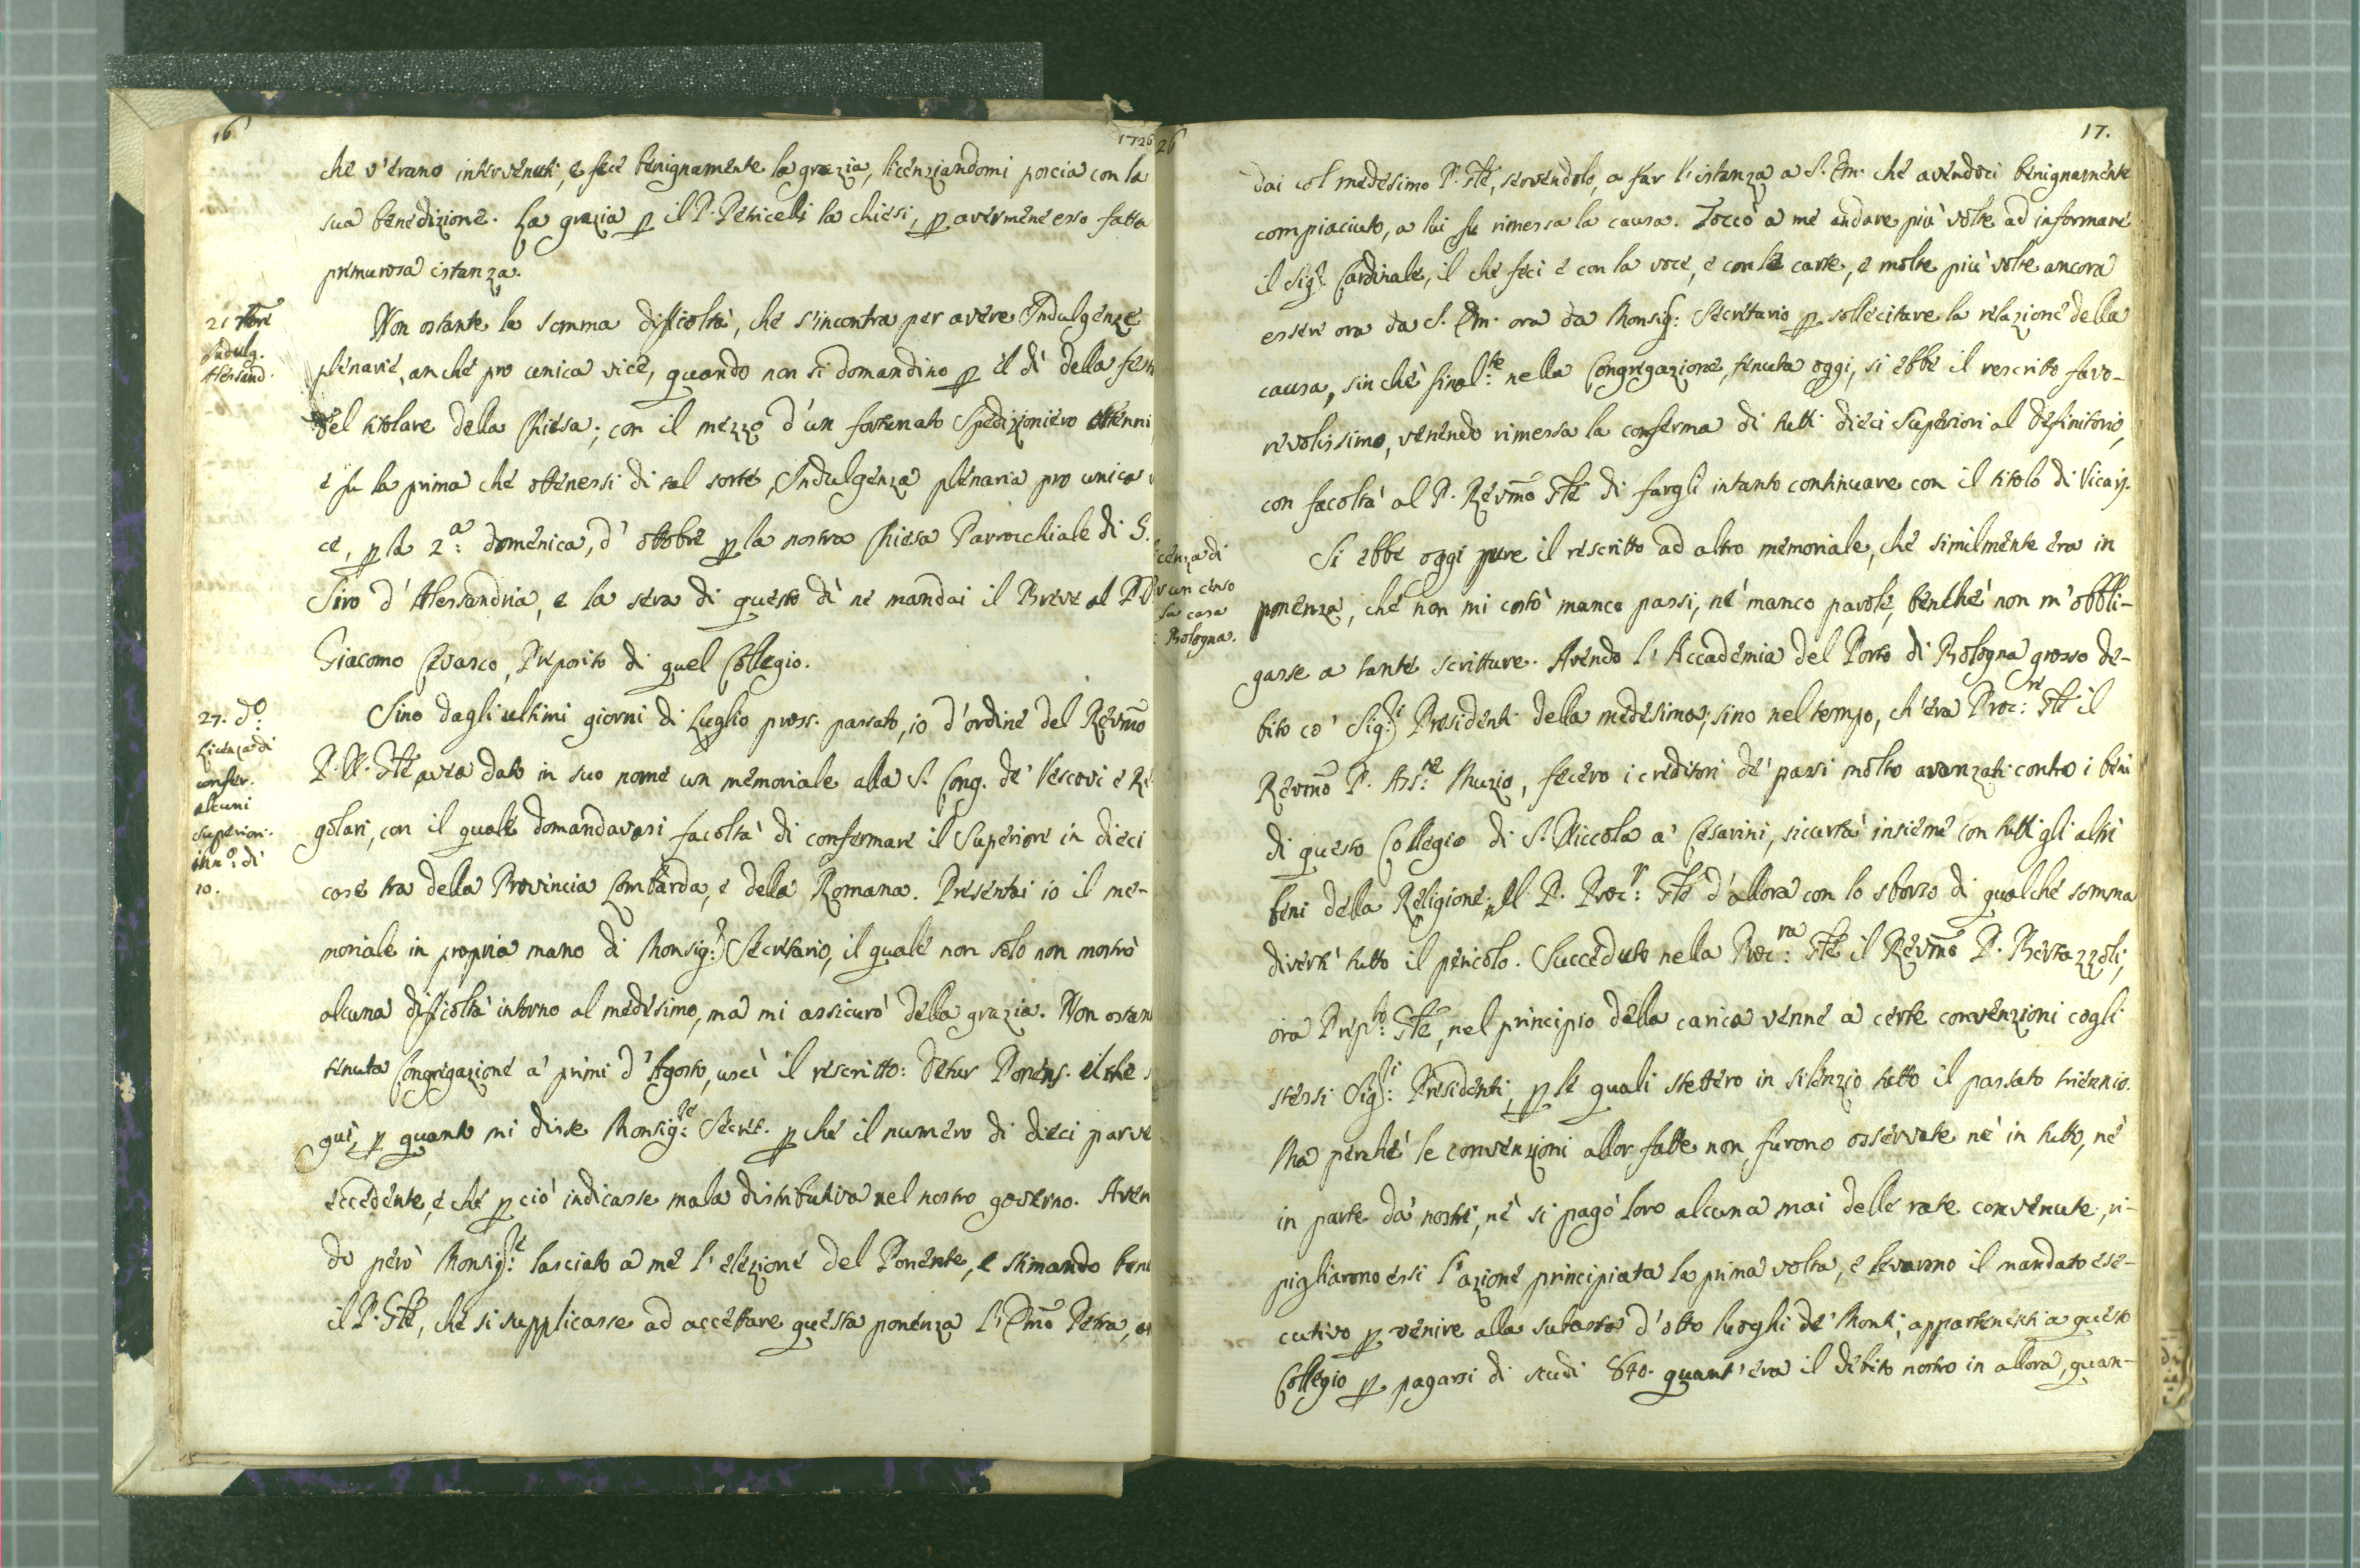 16
1726
che v'erano intervenuti, e fece benignamente la grazia, licenziandomi poscia con la
sua benedizione. La grazia p il P. Peniceli la chiesi, p avermene esso fatta
primurosa istanza.
21 7bre
Indulg.
Alessand.
Non ostante la somma difficoltà, che s'incontra per avere Indulgenze
plenarie, anche pro unica vice, quando non si domandino p il dì della fest
del titolare della Chiesa; con il mezzo d'un fortunato Spedizioniero ottenni
e fu la prima che ottenessi di tal sorte, Indulgenza plenaria pro unica
ce, p la 2.a domenica, d'ottobre p la nostra Chiesa Parrocchiale di S.
Siro d'Alessandria, e la sera di questo dì ne mandai il Breve al P. D
Giacomo Cevasco, Preposito di quel Collegio.
27. do
Licenza di
confer.
alcuni
superiori.
inn.o di
10.
Sino dagli ultimi giorni di Luglio pross. passato, io d'ordine del Revmo
P. N. Gle, avea dato in suo nome un memoriale alla S. Cong. de' Vescovi e Re
golari, con il quale domandavasi facoltà di confermare il Superiore in dieci
case tra della Provincia Lombarda, e della Romana. Presentai io il me-
moriale in propria mano di Monsig.r Secretario, il quale non solo non mostrò
alcuna difficoltà intorno al medesimo, ma mi assicurò della grazia. Non ostan
tenuta Congregazione a' primi d'Agosto, uscì il rescritto: Detur Ponens. il che s
guì, p quanto mi disse Monsig.re Secret. p che il numero di dieci parve
eccedente, e che p ciò indicasse mala distributiva nel nostro governo. Aven
do però Monsig.re lasciato a me l'elezione del Ponente, e stimando bene
il P. Gle, che si supplicasse ad accettare questa ponenza l'Emo Petra, an
26
17.
dai col medesimo P. Gle, servendolo, a far l'istanza a S. Em. che avendoci benignamente
compiaciuto, a lui fu rimessa la causa. Toccò a me andare più volte ad informare
il Sig.r Cardinale, il che feci e con la voce, e con le carte, e molte più volte ancora
essere ora da S. Em. ora da Monsig: Secretario p sollecitare la relazione della
causa, sinchè final.te nella Congregazione, tenuta oggi, si ebbe il rescritto favo-
revolissimo, venendo rimessa la conferma di tutti dieci Superiori al Definitorio,
con facoltà al P. Revmo Gle di fargli intanto continuare con il titolo di Vicarj.
icenza di
r un censo
la casa
: Bologna.
Si ebbe oggi pure il rescritto ad altro memoriale, che similmente era in
ponenza, che non mi costò manco passi, nè manco parole, benchè non m'obbli-
gasse a tante scritture. Avendo l'Accademia del Porto di Bologna grosso de-
bito co' Sig.ri Presidenti della medesima; sino nel tempo, ch'era Proc.re Gle il
Revmo P. Ass.te Muzio, fecero i creditori de' passi molto avanzati contro i beni
di questo Collegio di S. Niccola a' Cesarini, sicurtà insieme con tutti gli altri
beni della Religione; Il P. Proc.r Gle d'allora con lo sborso di qualche somma
divertì tutto il pericolo. Succeduto nella Proc.ra Gle il Revmo P. Bertazzoli,
ora Prep.to Gle, nel principio della carica venne a certe convenzioni cogli
stessi Sig.ri Presidenti, p le quali stettero in silenzio tutto il passato triennio.
Ma perchè le convenzioni allor fatte non furono osservate nè in tutto, nè
in parte da' nostri, nè si pagò loro alcuna mai delle rate convenute, ri-
pigliarono essi l'azione principiata la prima volta, e levarono il mandato ese-
cutivo p venire alla subasta d'otto luoghi de' Monti, appartenenti a questo
Collegio p pagarsi di scudi 840. quant'era il debito nostro in allora, quan-